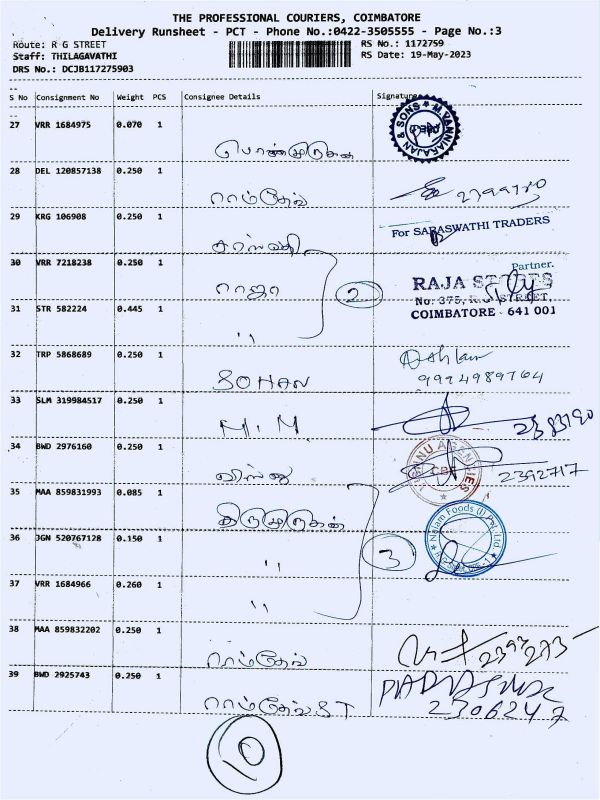 THE PROFESSIONAL COURIERS, COIMBATORE
Delivery Runsheet - PCT - Phone No.:0422-3505555 - Page No.:3
Route: R G STREET
RS No.: 1172759
Staff: THILAGAVATHI
RS Date: 19-May-2023
DRS No.: DCJB117275903
S No Consignment No Weight PCS Consignee Details Signature
27 VRR 1684975 0.070 1
& SONS ★ M.VANNIARAJAN
பொன்முருகன்
28 DEL 120857138 0.250 1
ராம்தேவ்
29 KRG 106908 0.250 1
For SARASWATHI TRADERS
சரஸ்வதி
Partner.
30 VRR 7218238 0.250 1
ராஜா
2
RAJA STORES
No: 375, R.G STREET,
COIMBATORE - 641 001
31 STR 582224 0.445 1
"
32 TRP 5868689 0.250 1
SOHAN
9994989764
33 SLM 319984517 0.250 1
M.M
34 BWD 2976160 0.250 1
விஷ்ணு
2392717
35 MAA 859831993 0.085 1
திருமுருகன்
Nalam Foods (I) Pvt. Ltd.
36 JGN 520767128 0.150 1
"
3
37 VRR 1684966 0.260 1
"
38 MAA 859832202 0.250 1
ராம்தேவ்
39 BWD 2925743 0.250 1
ராம்தேவ் ST
2306247
10